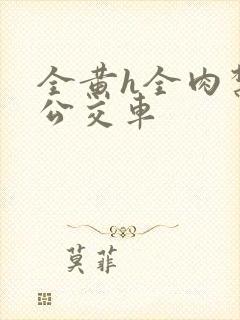 全黄h全肉
公交车
莫菲